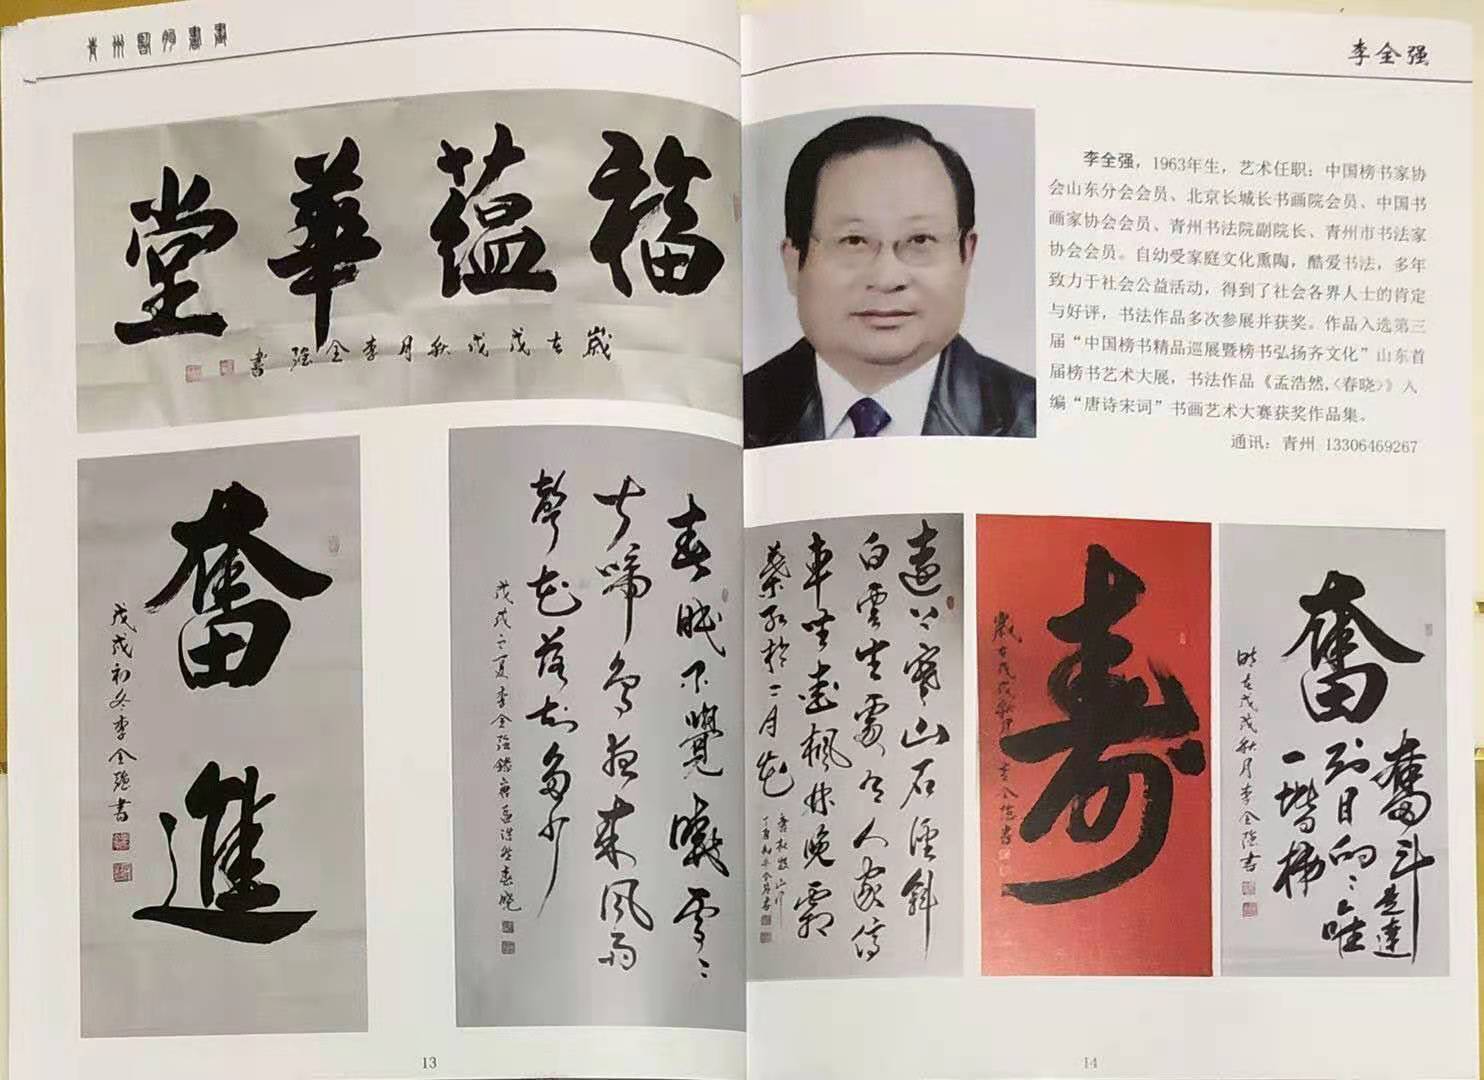 青州国朋书画
福蕴華堂
歲在戊戌秋月李全强書
奮進
戊戌初冬李全强書
春眠不覺曉處々
聞啼鳥夜來風雨
聲花落知多少
戊戌之夏李全强録唐孟浩然春晓
13
李全强
李全强，1963年生，艺术任职：中国榜书家协
会山东分会会员、北京长城长书画院会员、中国书
画家协会会员、青州书法院副院长、青州市书法家
协会会员。自幼受家庭文化熏陶，酷爱书法，多年
致力于社会公益活动，得到了社会各界人士的肯定
与好评，书法作品多次参展并获奖。作品入选第三
届“中国榜书精品巡展暨榜书弘扬齐文化”山东首
届榜书艺术大展，书法作品《孟浩然,〈春晓〉》入
编“唐诗宋词”书画艺术大赛获奖作品集。
通讯：青州 13306469267
遠上寒山石徑斜
白雲生處有人家停
車坐愛楓林晚霜
葉紅於二月花
壽
歲在戊戌秋月李全强書
奮
奮斗是達
到目的々唯
一階梯
時在戊戌秋月李全强書
14